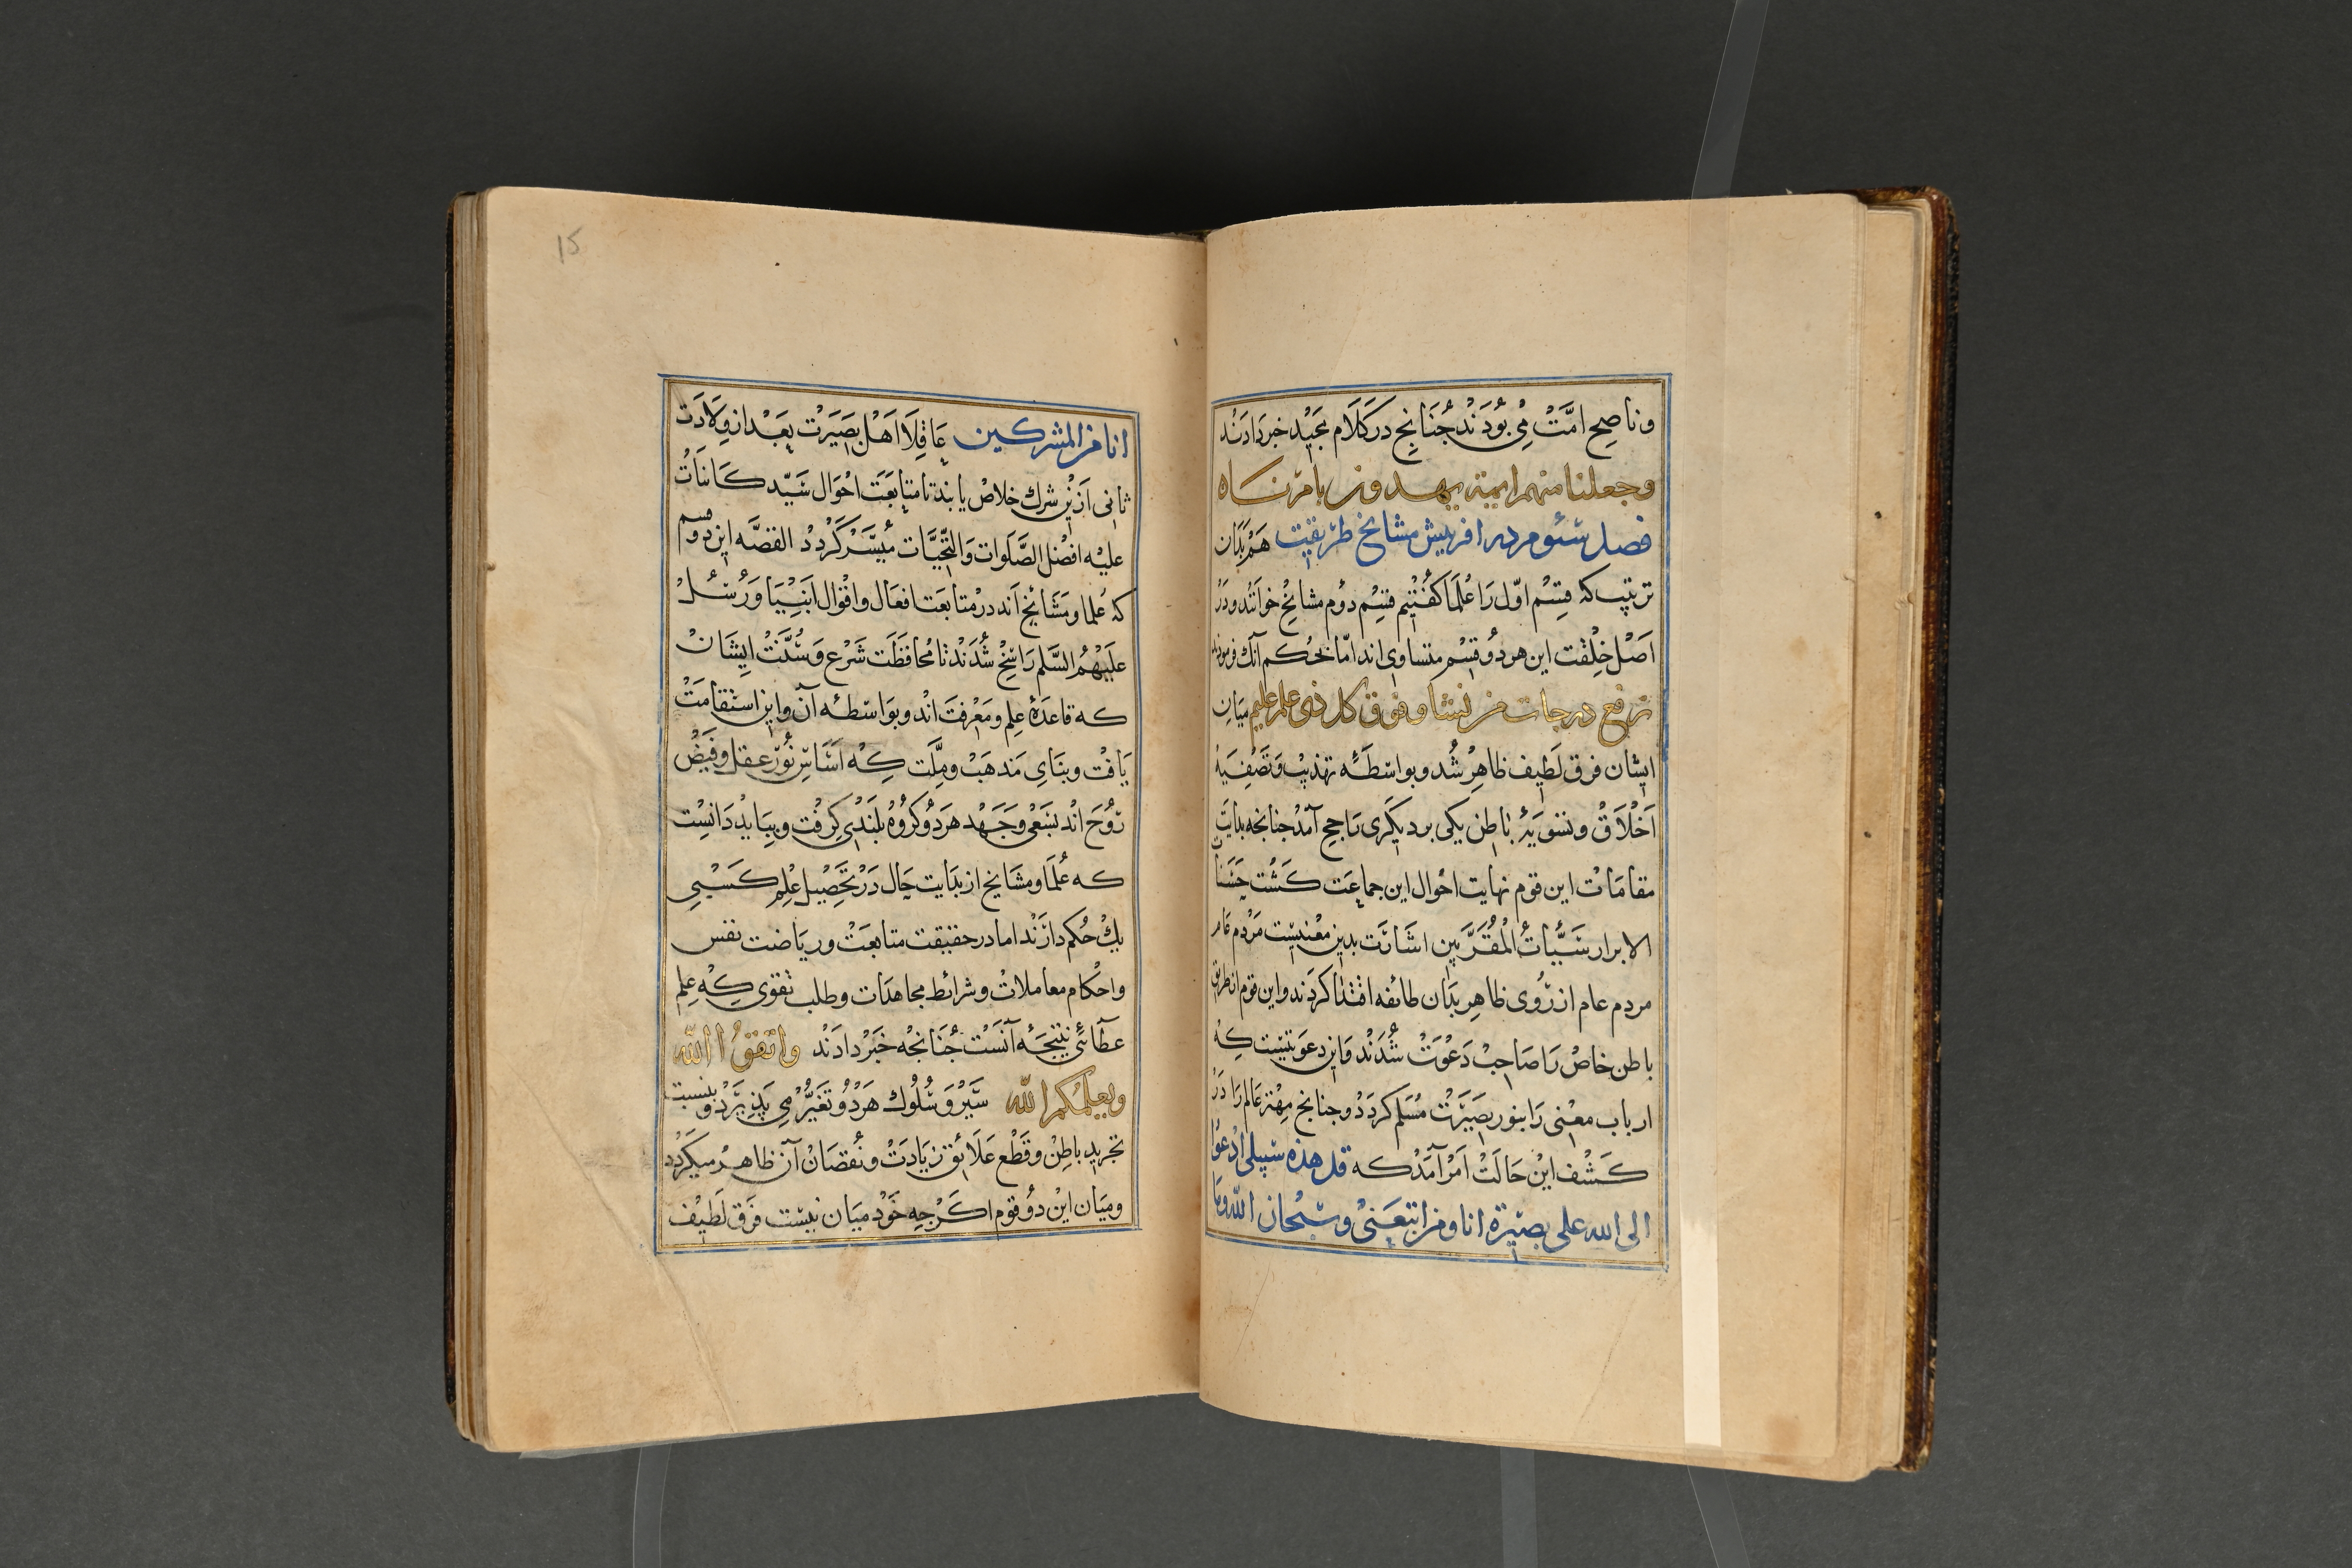 وناصح امّت می بودند چنانچ در کلام مجید خبر دادند
وجعلنا منهم ایمة یهدون بامرناه
فصل سئوم در افرینش مشایخ طریقت هم بدان
ترتیب که قسم اوّل را علما کفتیم قسم دوم مشایخ خوانند ودر
اصل خلقت این هر دو قسم متساوی اند امّا بحکم آنک فرموده
نرفع درجات من نشا وفوق کل ذی علم علیم میان
ایشان فرق لطیف ظاهر شد وبواسطه تهذیب وتصفیه
اخلاق وتسویه باطن یکی بر دیکری راجح آمد جنانجه بدایت
مقامات این قوم نهایت احوال این جماعت کشت حسنات
الابرار سیّأت المقرّبین اشارت بدین معنیست مردم عام
مردم عام از روی ظاهر بدان طائفه اقتدا کردند واین قوم از طریق
باطن خاص را صاحب دعوت شدند واین دعوتیست که
ارباب معنی را بنور بصیرت مسلم کردد وجنانچ مهتر عالم را در
کشف این حالت امر آمد که قل هذه سبیلی ادعوا
الی الله علی بصیرة انا ومن اتبعنی وسبحان الله وما
15
انا من المشرکین عاقلا اهل بصیرت بعد از ولادت
ثانی ازین شرک خلاص یابند تا متابعت احوال سیّد کاینات
علیه افضل الصّلوات والتّحیّات میسّر کردد القصّه این دوم قسم
که علما ومشایخ اند در متابعت افعال واقوال انبیا ورسل
علیهم السّلم راسخ شدند تا محافظت شرع وسنّت ایشان
که قاعدۀ علم ومعرفت اند وبواسطه آن واین استقامت
یافت وبنای مذهب وملّت که اساس نور عقل وفیض
روح اند بسعی وجهد هر دو کروه بلندی کرفت وبباید دانست
که علما ومشایخ از بدایت حال در تحصیل علم کسبی
یک حکم دارند اما در حقیقت متابعت وریاضت نفس
واحکام معاملات وشرائط مجاهدات وطلب تقوی که علم
عطائی نتیجه آنست جنانجه خبر دادند واتقوا الله
ویعلمکم الله سیر وسلوک هر دو تغیّر می پذیرد وبنسبت
تجرید باطن وقطع علائق زیادت ونقصان آن ظاهر میکردد
ومیان این دو قوم اکرجه خود میان نیست فرق لطیف